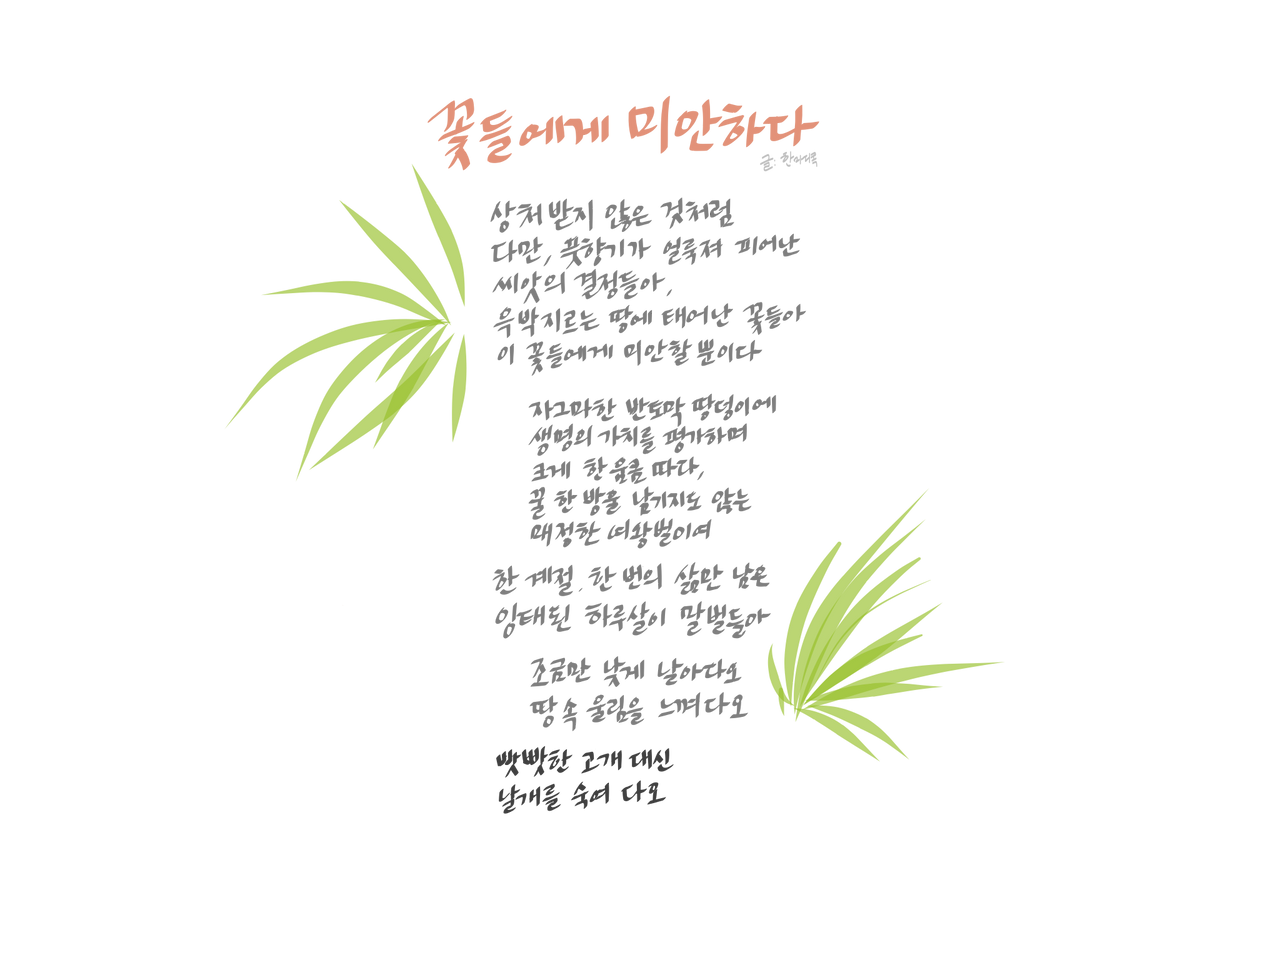 꽃들에게 미안하다
글:
상처 받지 않은 것처럼
다만, 풋향기가 얼룩져 피어난
씨앗의 결정들아,
윽박지르는 땅에 태어난 꽃들아
이 꽃들에게 미안할 뿐이다
자그마한 반토막 땅덩이에
생명의 가치를 평가하며
크게 한움큼 따다,
꿀 한 방울 남기지도 않는
매정한 여왕벌이여
한 계절, 한 번의 삶만 남은
잉태된 하루살이 말벌들아
조금만 낮게 날아다오
땅 속 울림을 느껴다오
빳빳한 고개 대신
날개를 숙여 다오